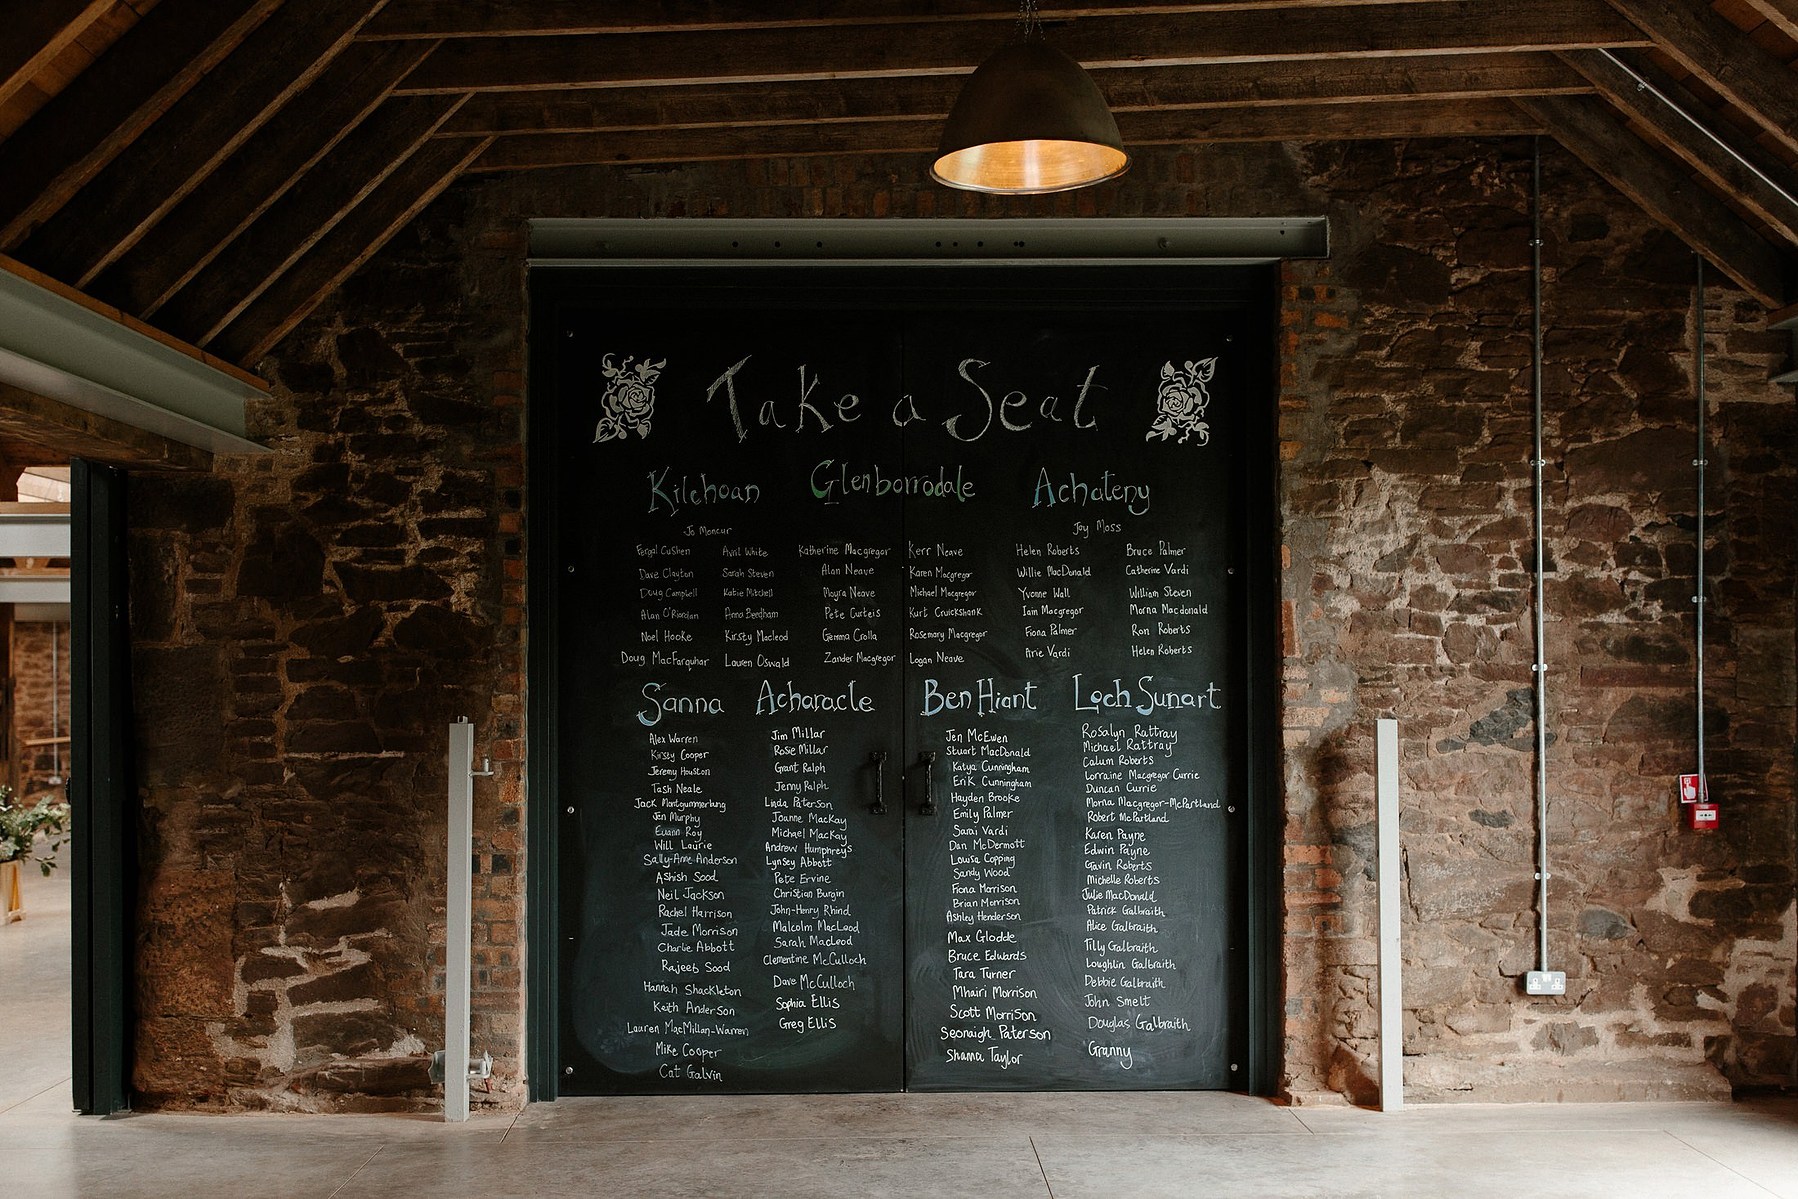 Take a Seat
Kilchoan
Jo Moncur
Fergal Cushen
Dave Clayton
Doug Campbell
Alan O'Riordan
Noel Hooke
Doug MacFarquhar
Avril White
Sarah Steven
Katie Mitchell
Anna Bentham
Kirsty Macleod
Lauren Oswald
Glenborrodale
Katherine Macgregor
Alan Neave
Mayra Neave
Pete Curteis
Gemma Crolla
Zander Macgregor
Kerr Neave
Karen Macgregor
Michael Macgregor
Kurt Cruickshank
Rosemary Macgregor
Logan Neave
Achateny
Joy Moss
Helen Roberts
Willie MacDonald
Yvonne Wall
Iain Macgregor
Fiona Palmer
Arie Vardi
Bruce Palmer
Catherine Vardi
William Steven
Morna Macdonald
Ron Roberts
Helen Roberts
Sanna
Alex Warren
Kirsty Cooper
Jeremy Houston
Tash Neale
Jack Montgummerbung
Jen Murphy
Euann Roy
Will Laurie
Sally-Anne Anderson
Ashish Sood
Neil Jackson
Rachel Harrison
Jade Morrison
Charlie Abbott
Rajeeb Sood
Hannah Shackleton
Keith Anderson
Lauren MacMillan-Warren
Mike Cooper
Cat Galvin
Acharacle
Jim Millar
Rosie Millar
Grant Ralph
Jenny Ralph
Linda Paterson
Joanne MacKay
Michael MacKay
Andrew Humphreys
Lynsey Abbott
Pete Ervine
Christian Burgin
John-Henry Rhind
Malcolm MacLeod
Sarah MacLeod
Clementine McCulloch
Dave McCulloch
Sophia Ellis
Greg Ellis
Ben Hiant
Jen McEwen
Stuart MacDonald
Katya Cunningham
Erik Cunningham
Hayden Brooke
Emily Palmer
Sarai Vardi
Dan McDermott
Louisa Copping
Sandy Wood
Fiona Morrison
Brian Morrison
Ashley Henderson
Max Glodde
Bruce Edwards
Tara Turner
Mhairi Morrison
Scott Morrison
Seonaigh Paterson
Shanna Taylor
Loch Sunart
Rosalyn Rattray
Michael Rattray
Calum Roberts
Lorraine Macgregor Currie
Duncan Currie
Morna Macgregor-McPartland
Robert McPartland
Karen Payne
Edwin Payne
Gavin Roberts
Michelle Roberts
Julie MacDonald
Patrick Galbraith
Alice Galbraith
Tilly Galbraith
Loughlin Galbraith
Debbie Galbraith
John Smelt
Douglas Galbraith
Granny